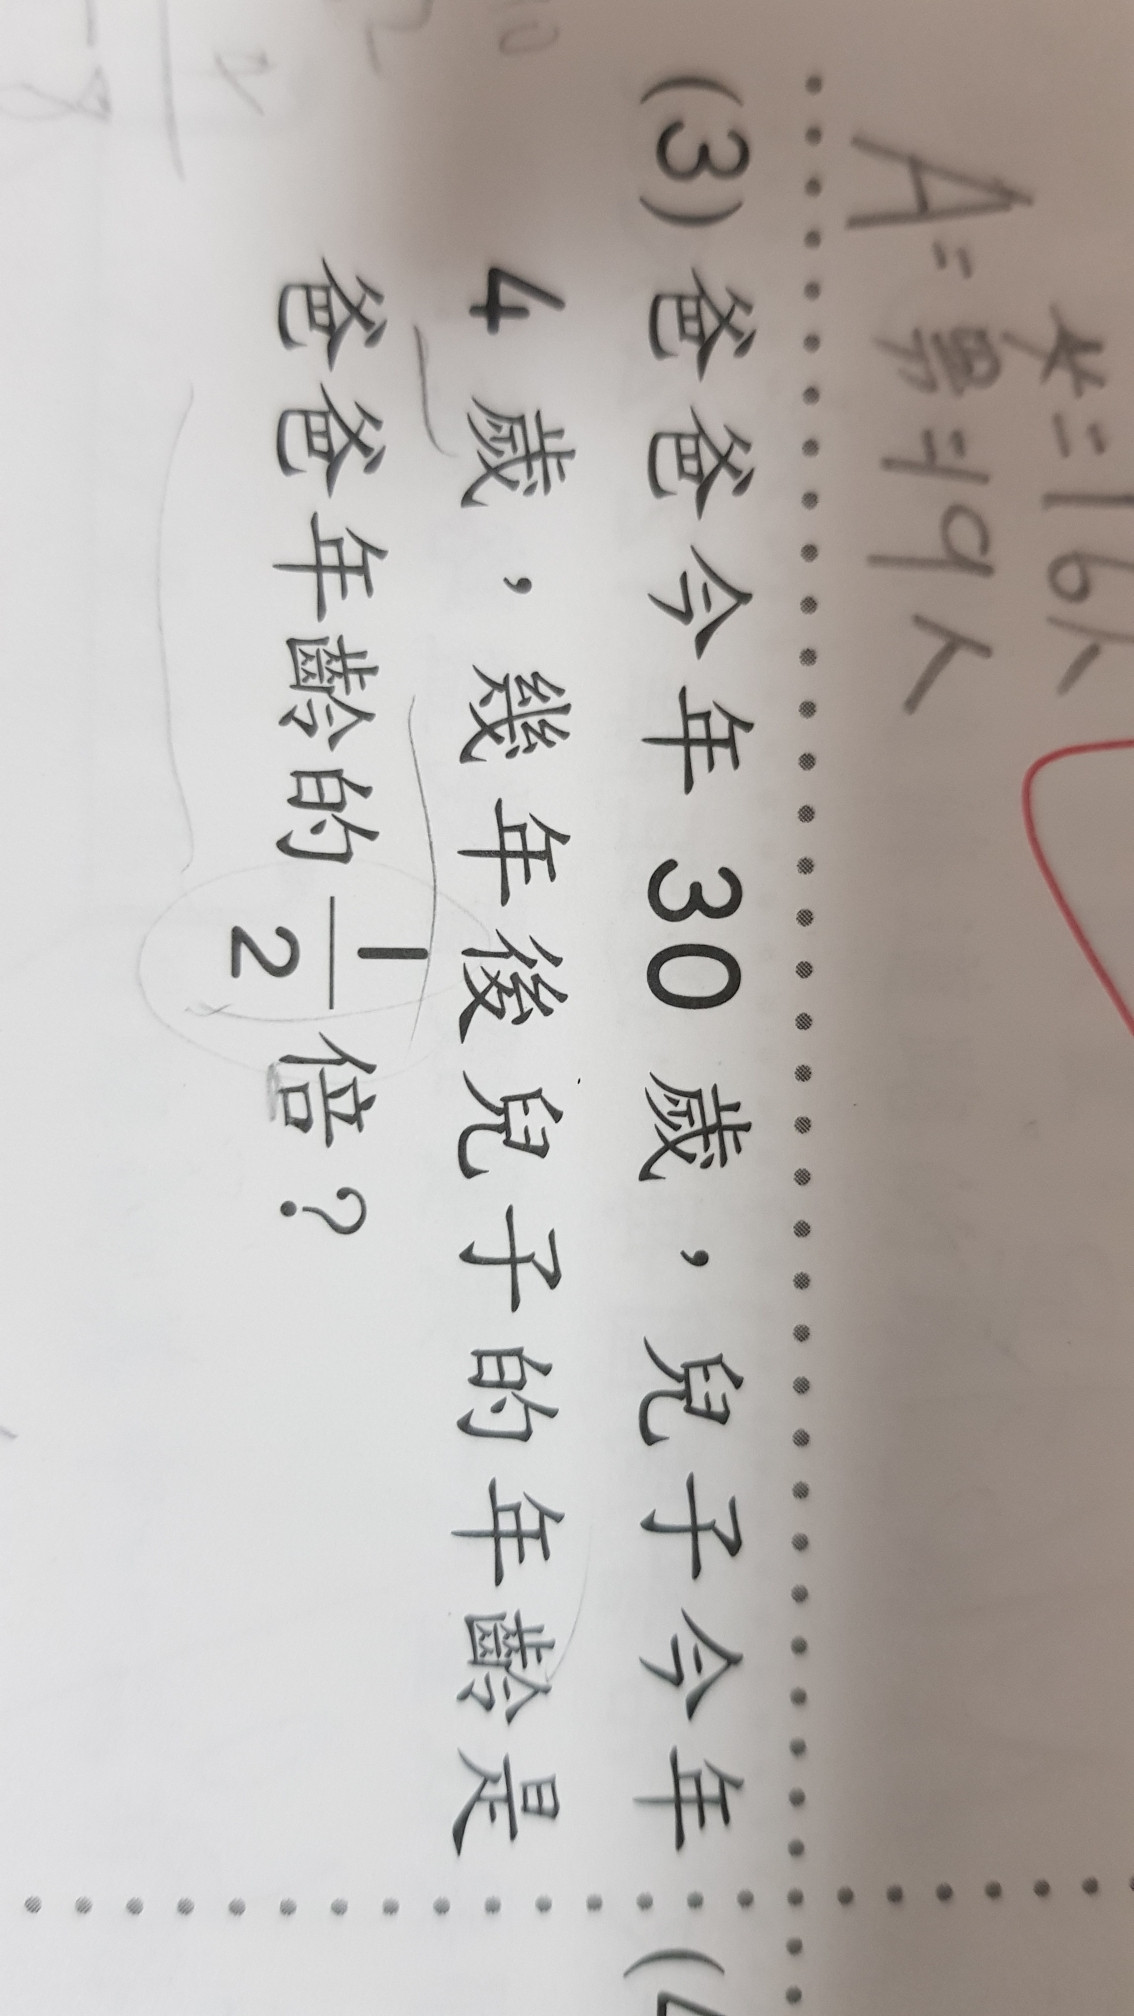 女=16人
A=男=19人
(3)爸爸今年 30 歲，兒子今年
4 歲，幾年後兒子的年齡是
爸爸年齡的 1/2 倍？